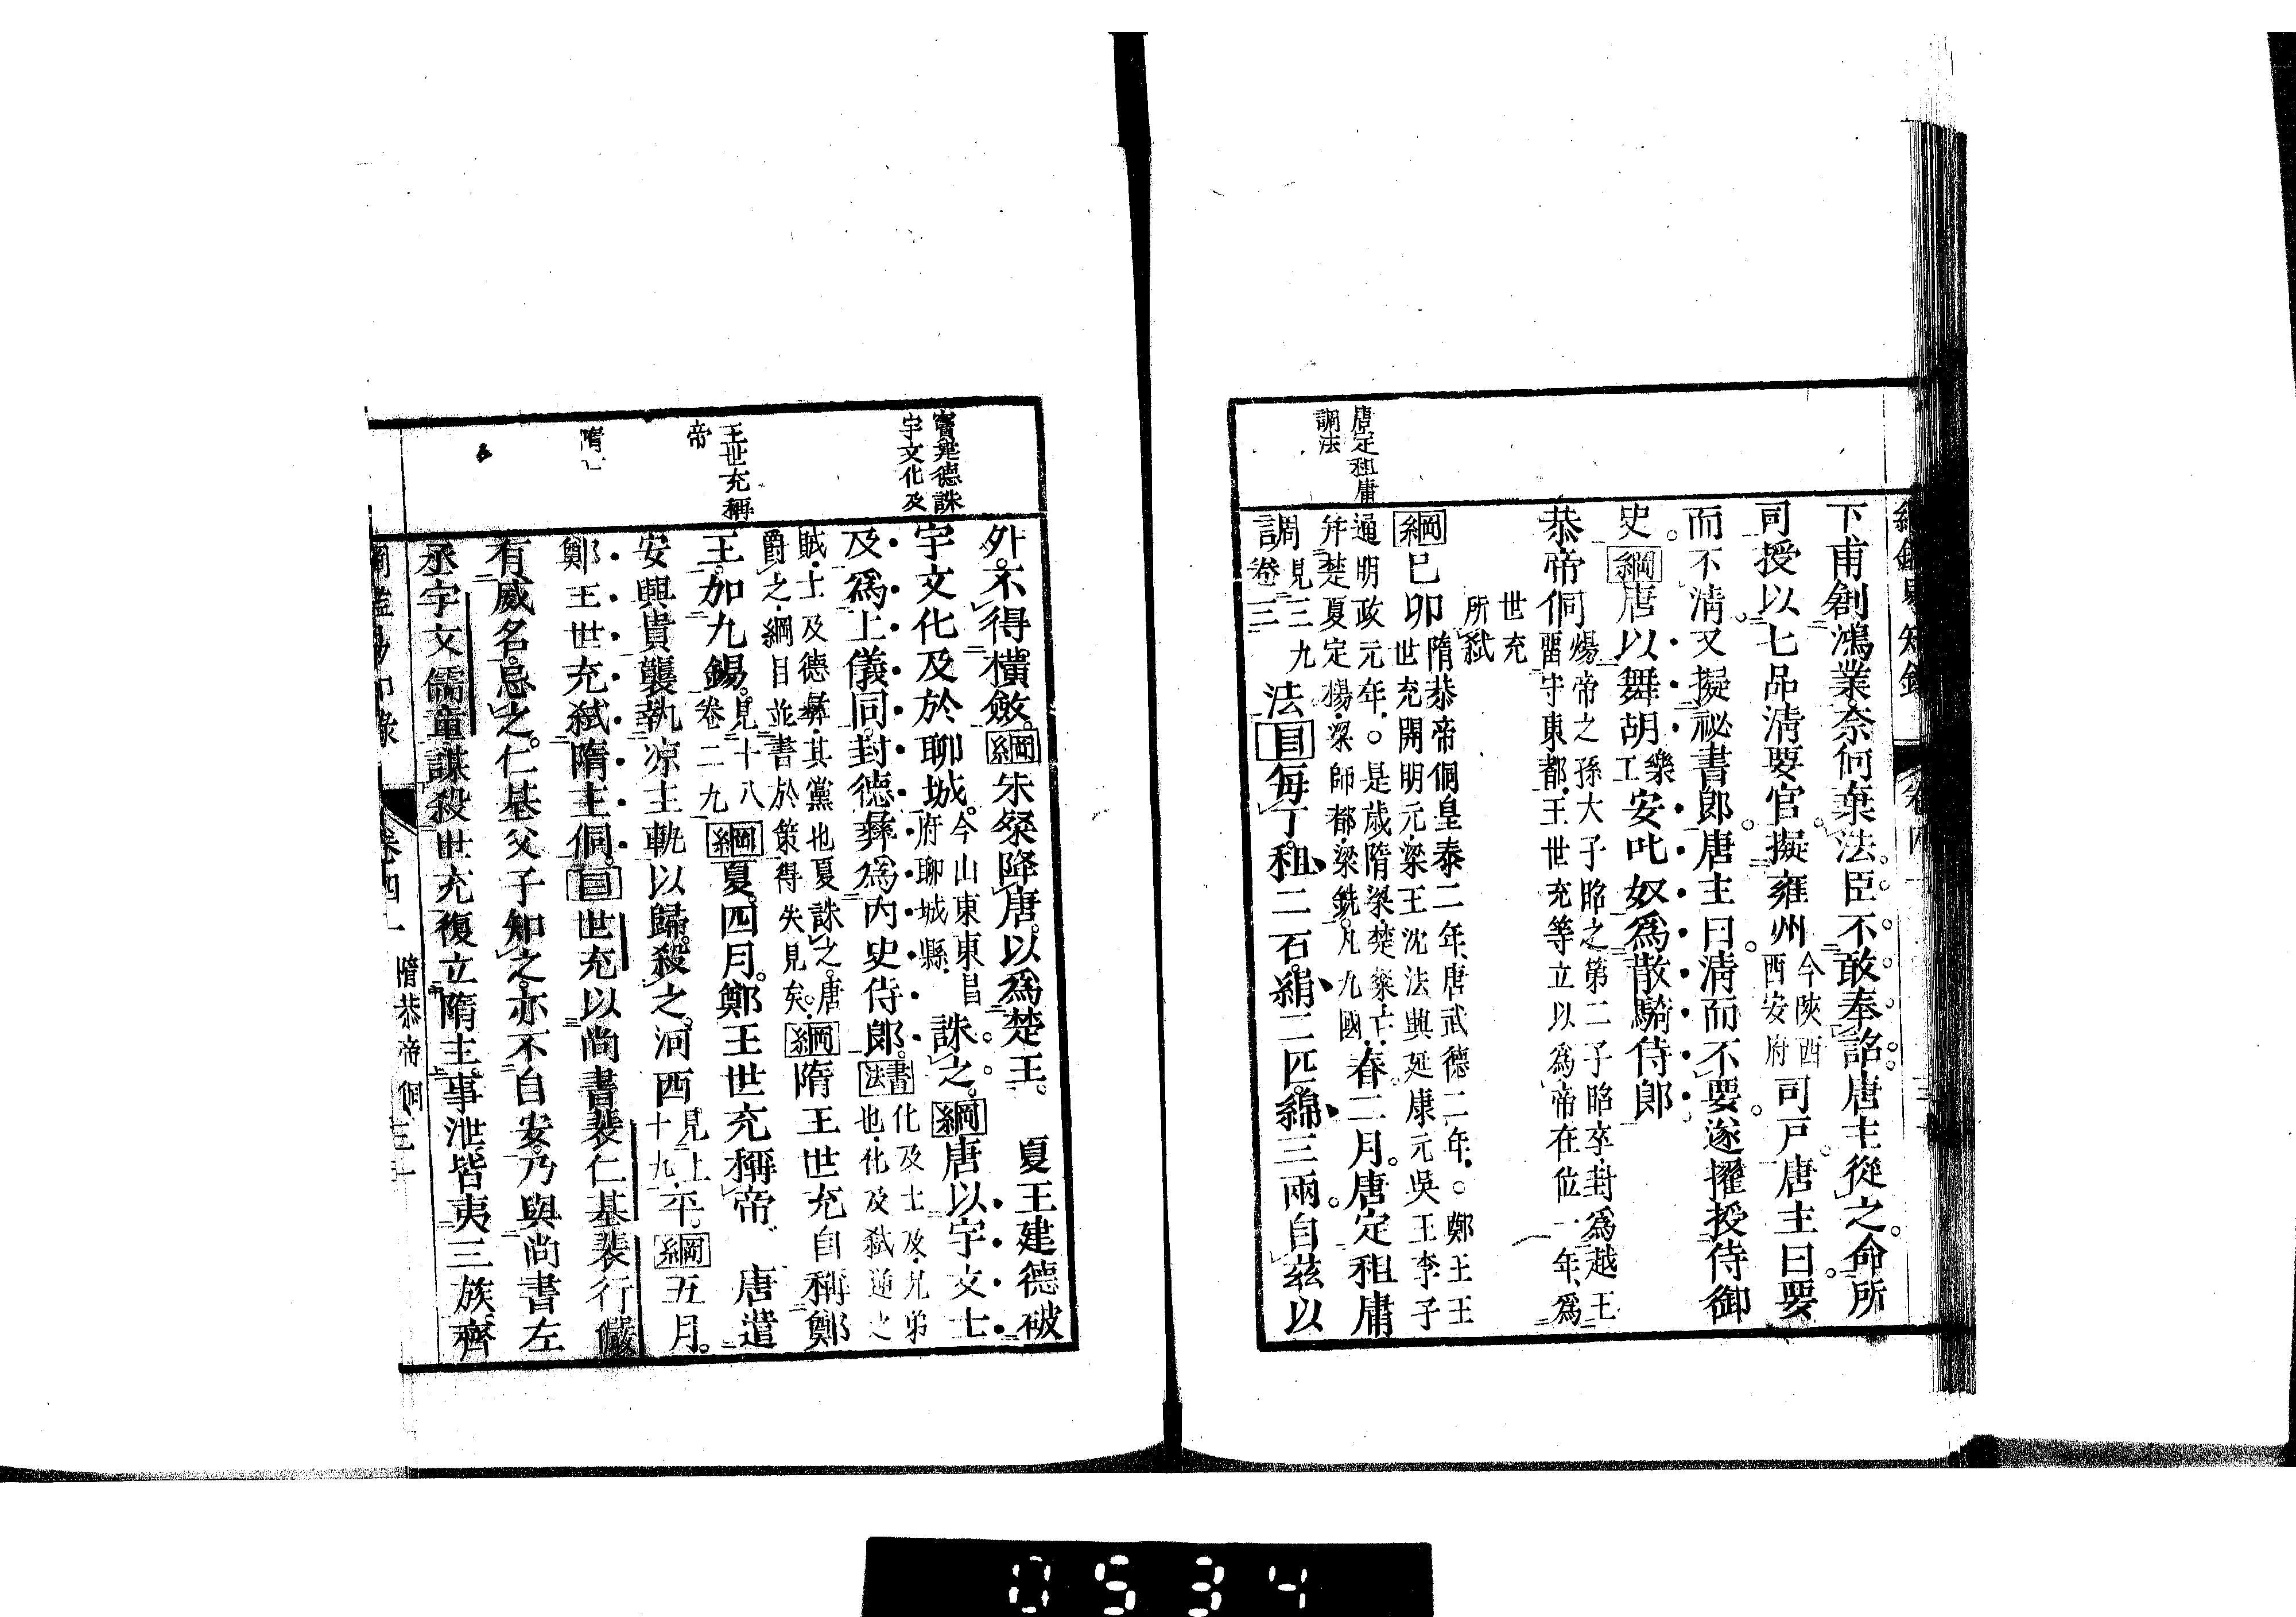 下甫創鴻業奈何棄法臣不敢奉詔唐主從之命所
司授以七品淸要官擬雍州今陝西西安府司戸唐主曰要
而不淸又擬祕書郎唐主曰淸而不要遂擢授侍御
史綱唐以舞胡樂工安叱奴爲散騎侍郎
恭帝侗煬帝之孫大子昭之第二子昭卒封爲越王
留守東都王世充等立以爲帝在位一年爲
世充
所弑
綱己卯隋恭帝侗皇泰二年唐武德二年○鄭王王
世充開明元梁王沈法興延康元吳王李子
通明政元年○是歲隋梁楚亡
幷楚夏定楊梁師都梁銑凡九國春二月唐定租庸
調見三九卷三法目每丁租二石絹二匹綿三兩自茲以
唐定租庸
調法
外不得橫斂綱朱粲降唐以爲楚王　夏王建德破
宇文化及於聊城今山東東昌府聊城縣誅之綱唐以宇文士
及爲上儀同封德彝爲內史侍郎書法化及士及兄弟也化及弑逆之
賊士及德彝其黨也夏誅之唐
爵之綱目並書於策得失見矣綱隋王世充自稱鄭
王加九錫見十八卷二九綱夏四月鄭王世充稱帝　唐遣
安興貴襲執涼主軌以歸殺之河西見上十九平綱五月
鄭王世充弑隋主侗目世充以尚書裴仁基裴行儼
有威名忌之仁基父子知之亦不自安乃與尚書左
丞宇文儒童謀殺世充復立隋主事泄皆夷三族齊
竇建德誅
宇文化及
王世充稱
帝
隋
卷四一　隋恭帝侗
0534